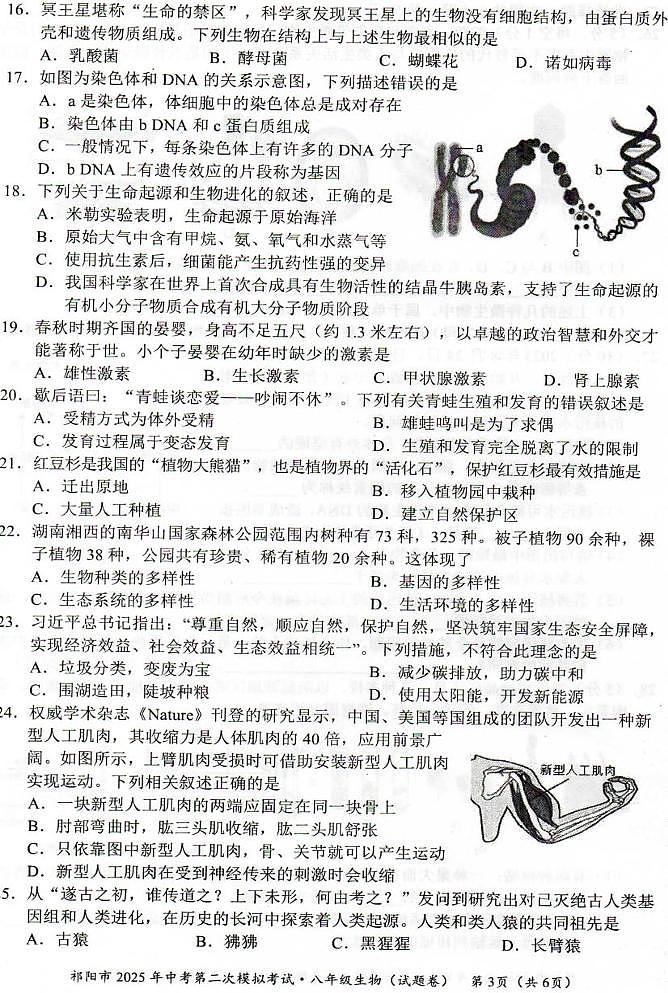 16. 冥王星堪称“生命的禁区”，科学家发现冥王星上的生物没有细胞结构，由蛋白质外
壳和遗传物质组成。下列生物在结构上与上述生物最相似的是
A. 乳酸菌 B. 酵母菌 C. 蝴蝶花 D. 诺如病毒
17. 如图为染色体和 DNA 的关系示意图，下列描述错误的是
A. a 是染色体，体细胞中的染色体总是成对存在
B. 染色体由 b DNA 和 c 蛋白质组成
C. 一般情况下，每条染色体上有许多的 DNA 分子
D. b DNA 上有遗传效应的片段称为基因
a
b
c
18. 下列关于生命起源和生物进化的叙述，正确的是
A. 米勒实验表明，生命起源于原始海洋
B. 原始大气中含有甲烷、氨、氧气和水蒸气等
C. 使用抗生素后，细菌能产生抗药性强的变异
D. 我国科学家在世界上首次合成具有生物活性的结晶牛胰岛素，支持了生命起源的
有机小分子物质合成有机大分子物质阶段
19. 春秋时期齐国的晏婴，身高不足五尺（约 1.3 米左右），以卓越的政治智慧和外交才
能著称于世。小个子晏婴在幼年时缺少的激素是
A. 雄性激素 B. 生长激素 C. 甲状腺激素 D. 肾上腺素
20. 歇后语曰：“青蛙谈恋爱——吵闹不休”。下列有关青蛙生殖和发育的错误叙述是
A. 受精方式为体外受精 B. 雄蛙鸣叫是为了求偶
C. 发育过程属于变态发育 D. 生殖和发育完全脱离了水的限制
21. 红豆杉是我国的“植物大熊猫”，也是植物界的“活化石”，保护红豆杉最有效措施是
A. 迁出原地 B. 移入植物园中栽种
C. 大量人工种植 D. 建立自然保护区
22. 湖南湘西的南华山国家森林公园范围内树种有 73 科，325 种。被子植物 90 余种，裸
子植物 38 种，公园共有珍贵、稀有植物 20 余种。这体现了
A. 生物种类的多样性 B. 基因的多样性
C. 生态系统的多样性 D. 生活环境的多样性
23. 习近平总书记指出：“尊重自然，顺应自然，保护自然，坚决筑牢国家生态安全屏障，
实现经济效益、社会效益、生态效益相统一”。下列措施，不符合此理念的是
A. 垃圾分类，变废为宝 B. 减少碳排放，助力碳中和
C. 围湖造田，陡坡种粮 D. 使用太阳能，开发新能源
24. 权威学术杂志《Nature》刊登的研究显示，中国、美国等国组成的团队开发出一种新
型人工肌肉，其收缩力是人体肌肉的 40 倍，应用前景广
阔。如图所示，上臂肌肉受损时可借助安装新型人工肌肉
实现运动。下列相关叙述正确的是
新型人工肌肉
A. 一块新型人工肌肉的两端应固定在同一块骨上
B. 肘部弯曲时，肱三头肌收缩，肱二头肌舒张
C. 只依靠图中新型人工肌肉，骨、关节就可以产生运动
D. 新型人工肌肉在受到神经传来的刺激时会收缩
5. 从“遂古之初，谁传道之？上下未形，何由考之？”发问到研究出对已灭绝古人类基
因组和人类进化，在历史的长河中探索着人类起源。人类和类人猿的共同祖先是
A. 古猿 B. 狒狒 C. 黑猩猩 D. 长臂猿
祁阳市 2025 年中考第二次模拟考试·八年级生物（试题卷） 第 3页（共 6页）